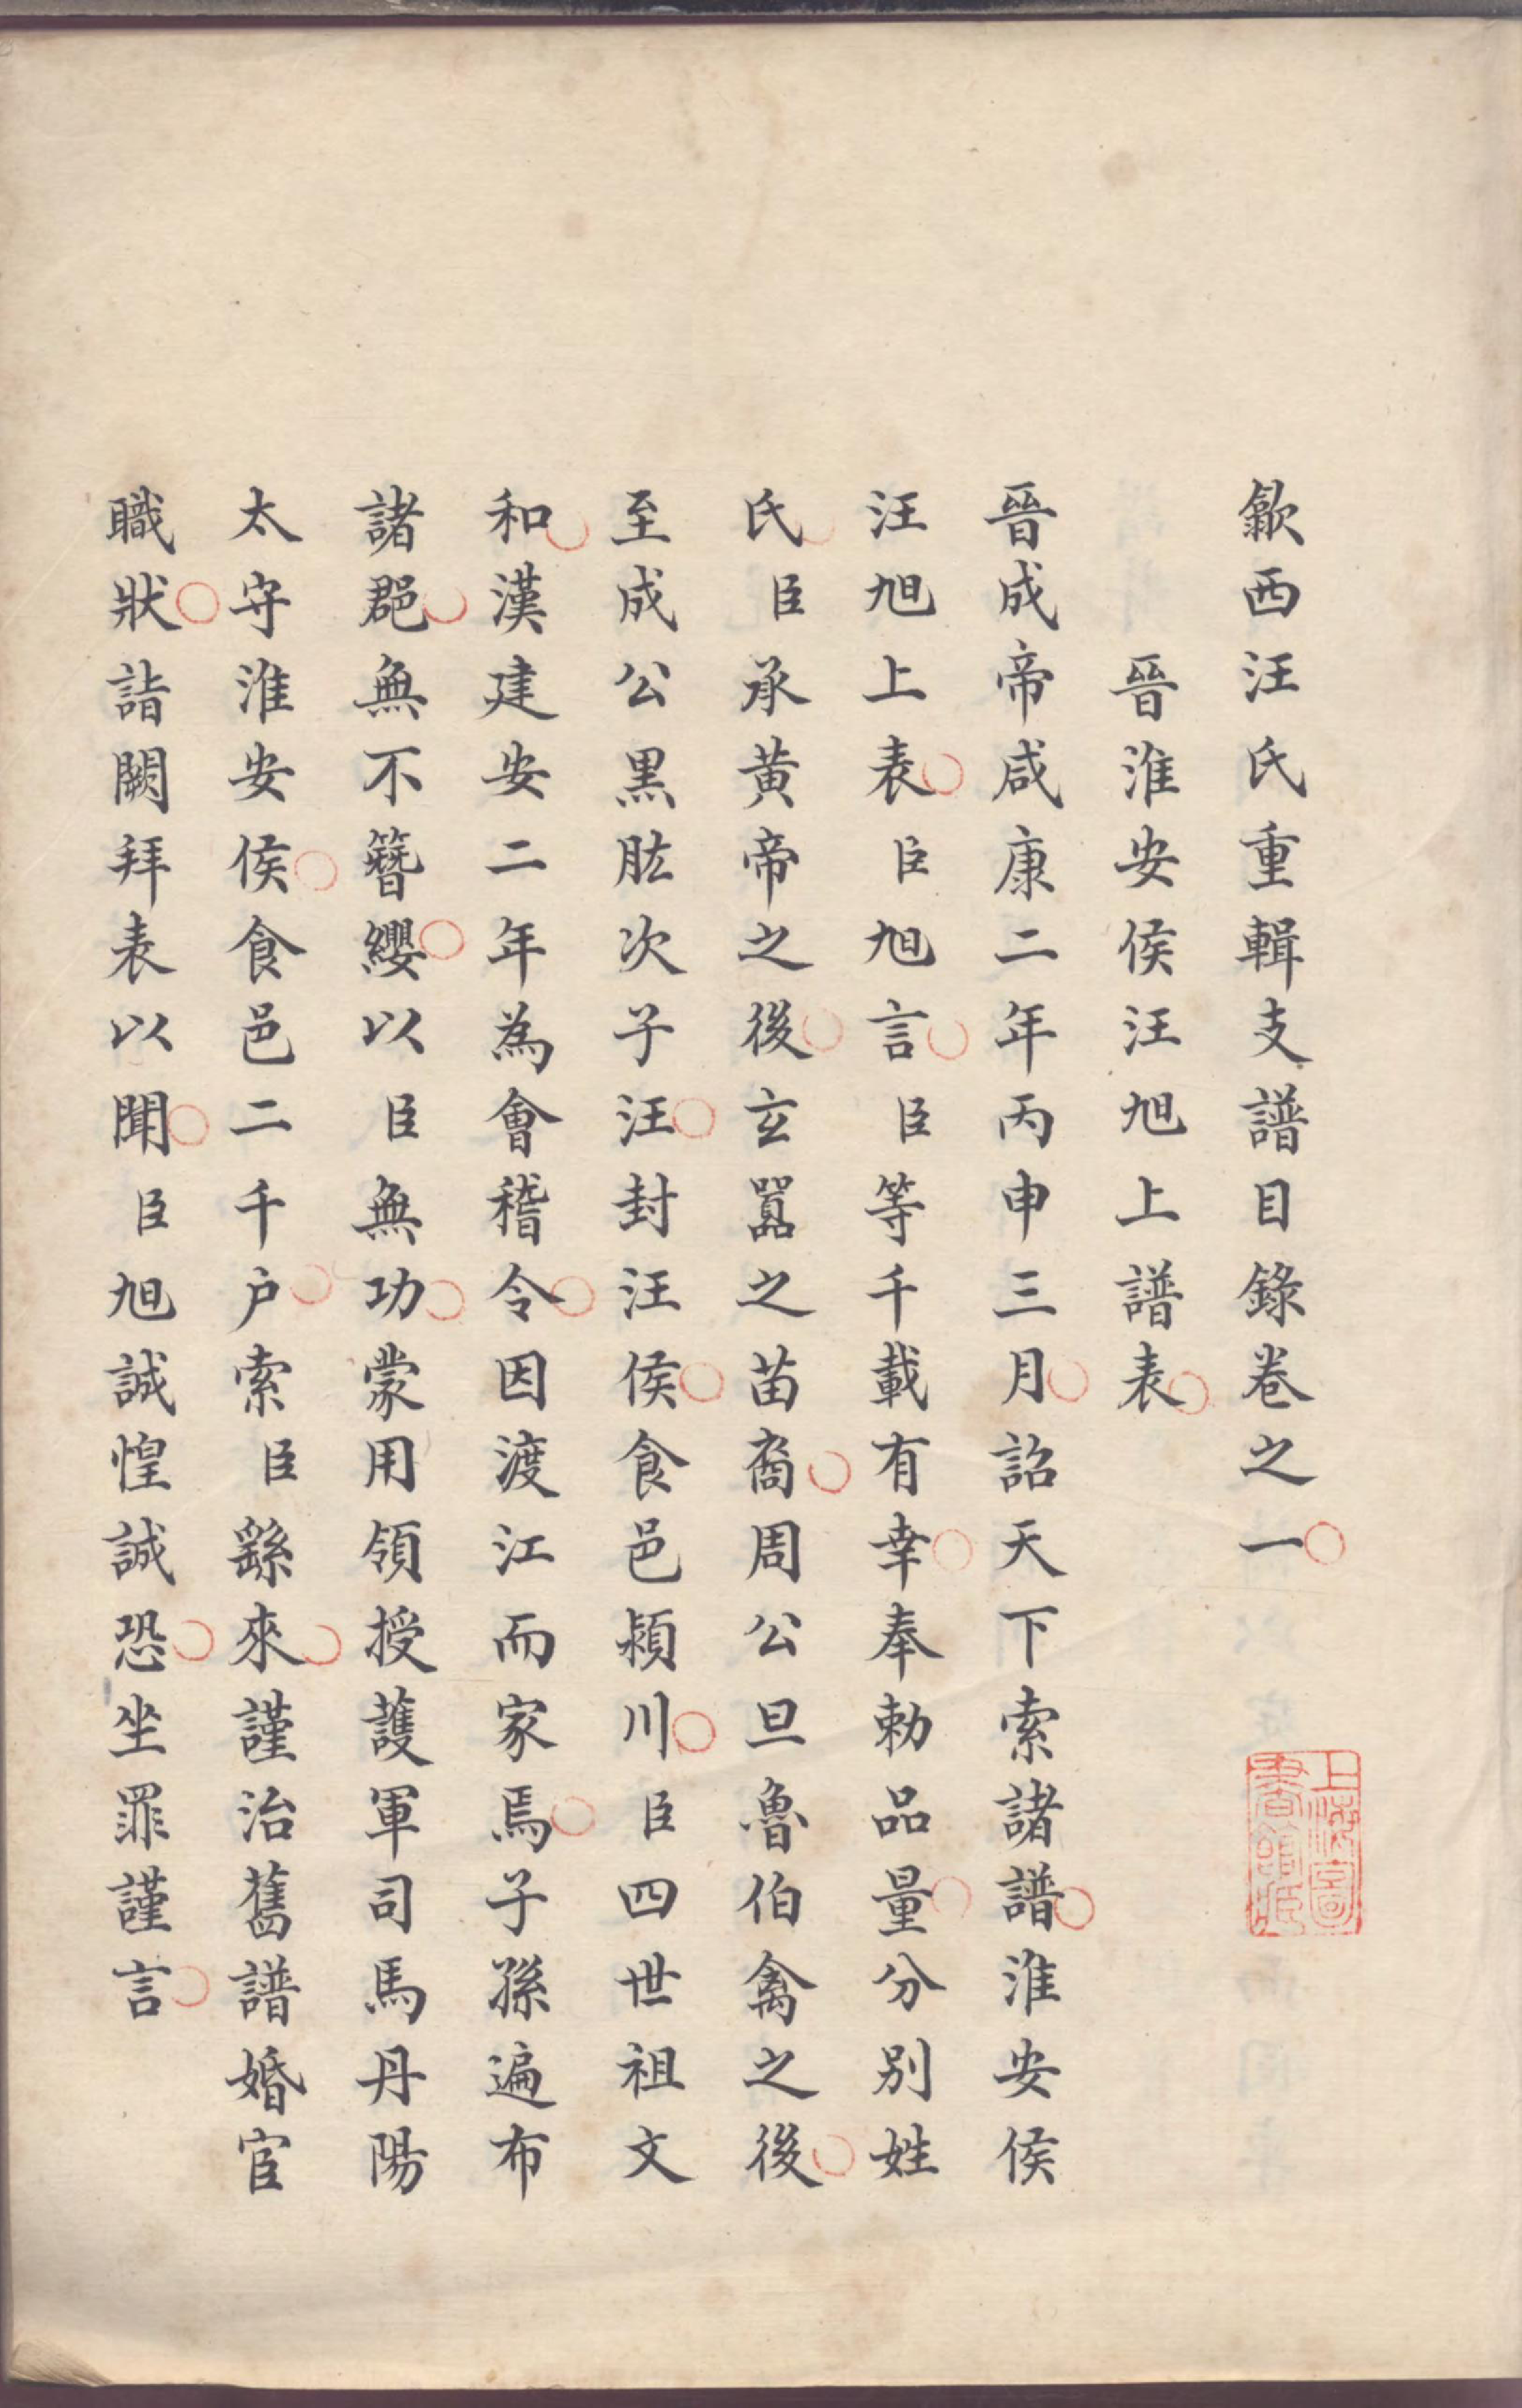 歙西汪氏重輯支譜目錄卷之一
晉淮安侯汪旭上譜表
晉成帝咸康二年丙申三月詔天下索諸譜淮安侯
汪旭上表臣旭言臣等千載有幸奉勅品量分別姓
氏臣承黄帝之後玄囂之苗裔周公旦魯伯禽之後
至成公黒肱次子汪封汪侯食邑潁川臣四世祖文
和漢建安二年為會稽令因渡江而家焉子孫遍布
諸郡無不簪纓以臣無功蒙用領授護軍司馬丹陽
太守淮安侯食邑二千户索臣繇來謹治舊譜婚宦
職狀詣闕拜表以聞臣旭誠惶誠恐坐罪謹言
上海圖書館藏